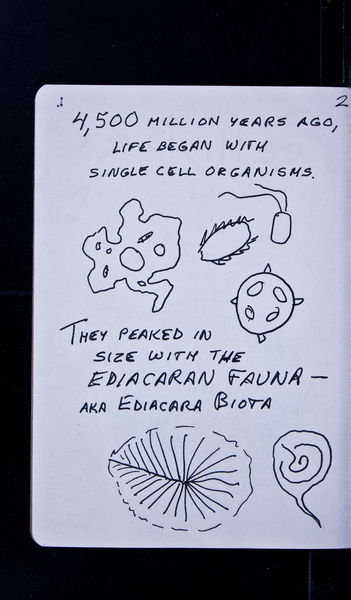 2
4,500 MILLION YEARS AGO,
LIFE BEGAN WITH
SINGLE CELL ORGANISMS.
THEY PEAKED IN
SIZE WITH THE
EDIACARAN FAUNA —
AKA EDIACARA BIOTA